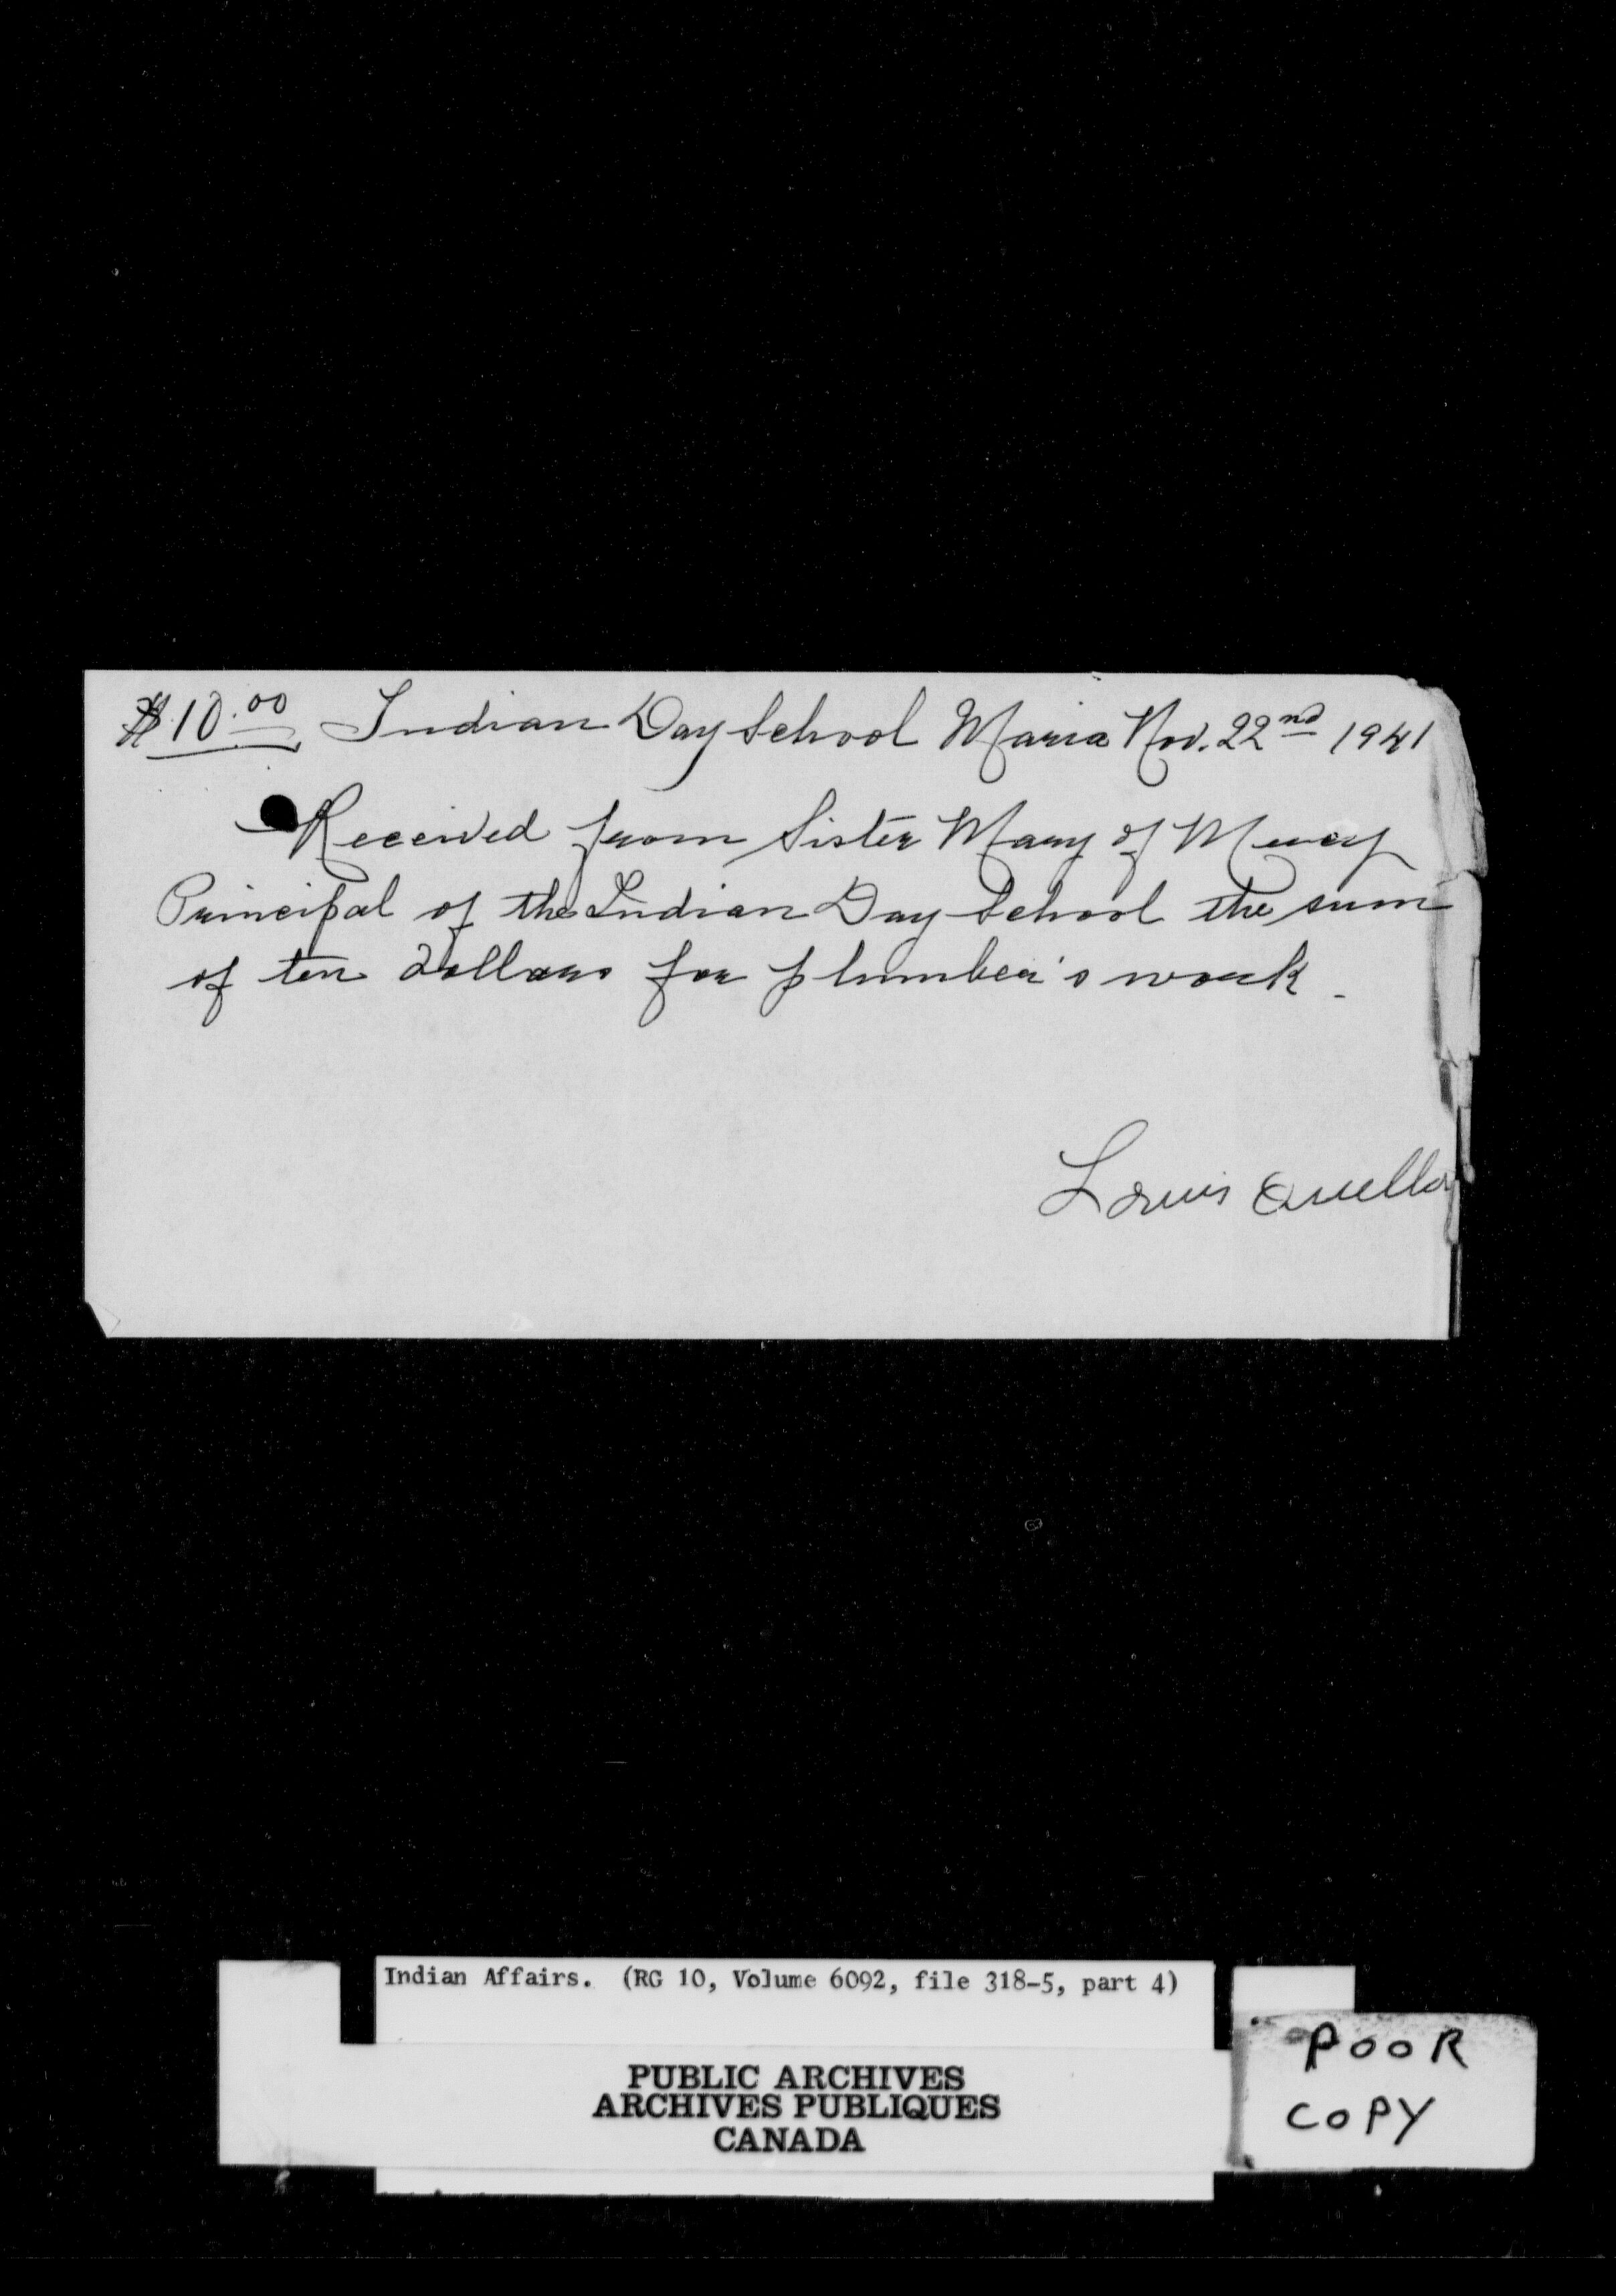 $10.00 Indian Day School Maria Nov. 22nd 1941
Received from Sister Mary of Mercy
Principal of the Indian Day School the sum
of ten dollars for plumber's work.
Louis
Indian Affairs. (RG 10, Volume 6092, file 318-5, part 4)
PUBLIC ARCHIVES
ARCHIVES PUBLIQUES
CANADA
POOR
COPY